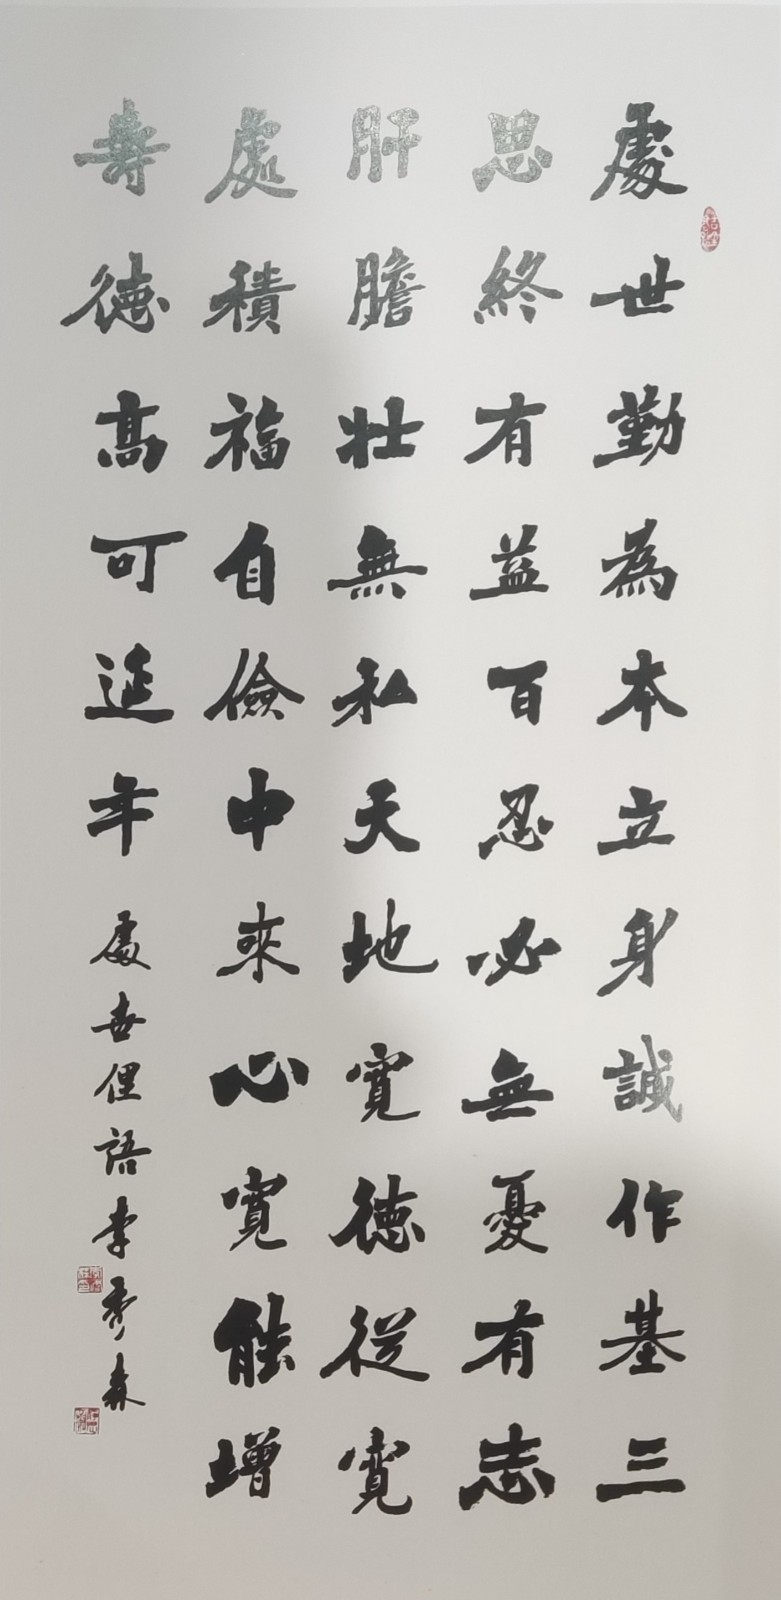 處世勤為本立身誠作基三
思終有益百忍必無憂有志
肝膽壯無私天地寬德從寬
處積福自儉中來心寬能增
壽德高可延年
處世俚語李秀森